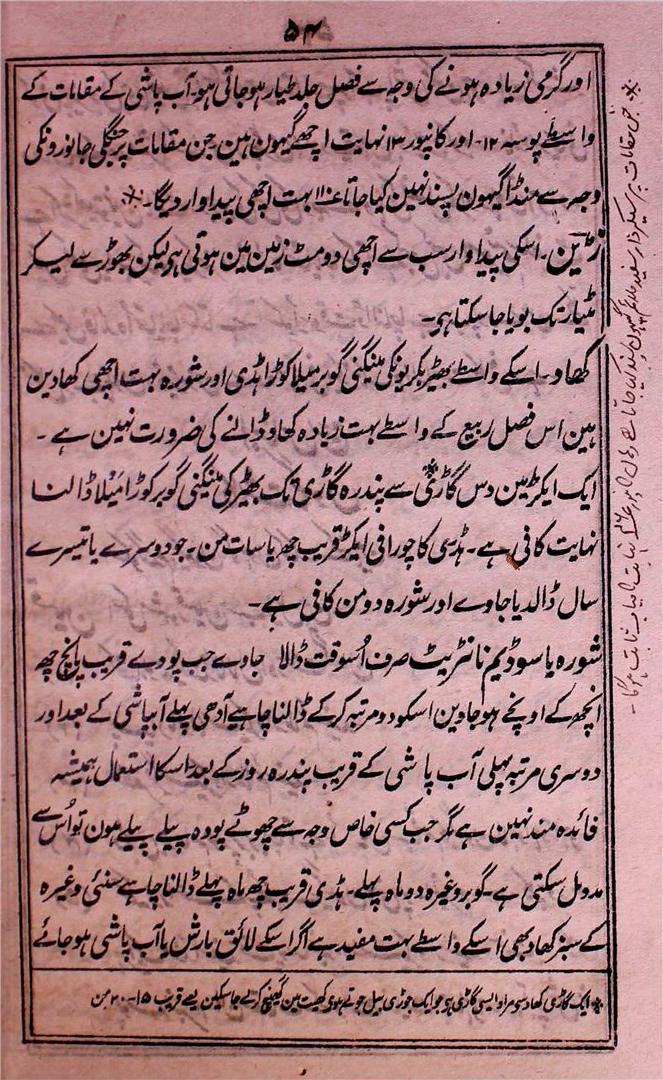 ۵۴
اور گرمی زیادہ ہونے کی وجہ سے فصل جلد طیار ہو جاتی ہو۔ آب پاشی کے مقامات کے
واسطے پوسہ ۱۲۔ اور کانپور ۱۳ نہایت اچھے گیہون ہین جن مقامات پر جنگلی جانورونکی
وجہ سے منڈا گیہون پسند نہین کیا جاتا بہت اچھی پیداوار دیگا۔ *
زمین۔ اسکی پیداوار سب سے اچھی دومٹ زمین مین ہوتی ہی لیکن بھوڑ سے لیکر
مٹیار تک بویا جا سکتا ہی۔
کھاد۔ اسکے واسطے بھیڑ بکریونکی مینگنی گوبر میلا کوڑا ہڈی اور شورہ بہت اچھی کھادین
ہین اس فصل ربیع کے واسطے بہت زیادہ کھاد ڈالنے کی ضرورت نہین ہے۔
ایک ایکڑ مین دس گاڑی* سے پندرہ گاڑی تک بھیڑ کی مینگنی گوبر کوڑا میلا ڈالنا
نہایت کافی ہے۔ ہڈی کا چورا فی ایکڑ قریب چھ یا سات من۔ جو دوسرے یا تیسرے
سال ڈالدیا جاوے اور شورہ دو من کافی ہے۔
شورہ یا سوڈیم نائٹریٹ صرف اُسوقت ڈالا جاوے جب پودے قریب پانچ چھ
انچھ کے اونچے ہو جاوین اسکو دو مرتبہ کرکے ڈالنا چاہیے آدھی پہلے آبپاشی کے بعد اور
دوسری مرتبہ پہلی آب پاشی کے قریب پندرہ روز کے بعد اسکا استعمال ہمیشہ
فائدہ مند نہین ہے مگر جب کسی خاص وجہ سے چھوٹے پودہ پیلے پیلے ہون تو اُس سے
مدد مل سکتی ہے۔ گوبر وغیرہ دو ماہ پہلے۔ ہڈی قریب چھ ماہ پہلے ڈالنا چاہے سنئی وغیرہ
کے سبز کھاد بھی اسکے واسطے بہت مفید ہے اگر اسکے لائق بارش یا آب پاشی ہو جائے
* ایک گاڑی کھاد سے مراد ایسی گاڑی ہی جو ایک جوڑی بیل جوتے ہوی کھیت مین کھینچ کر لے جاسکین یعنے قریب ۱۵-۲۰ من
* جن مقامات پر سفید ملائم گیہون پسند کیا جاتا ہے وہان نہایت کامیاب ثابت ہوگا۔